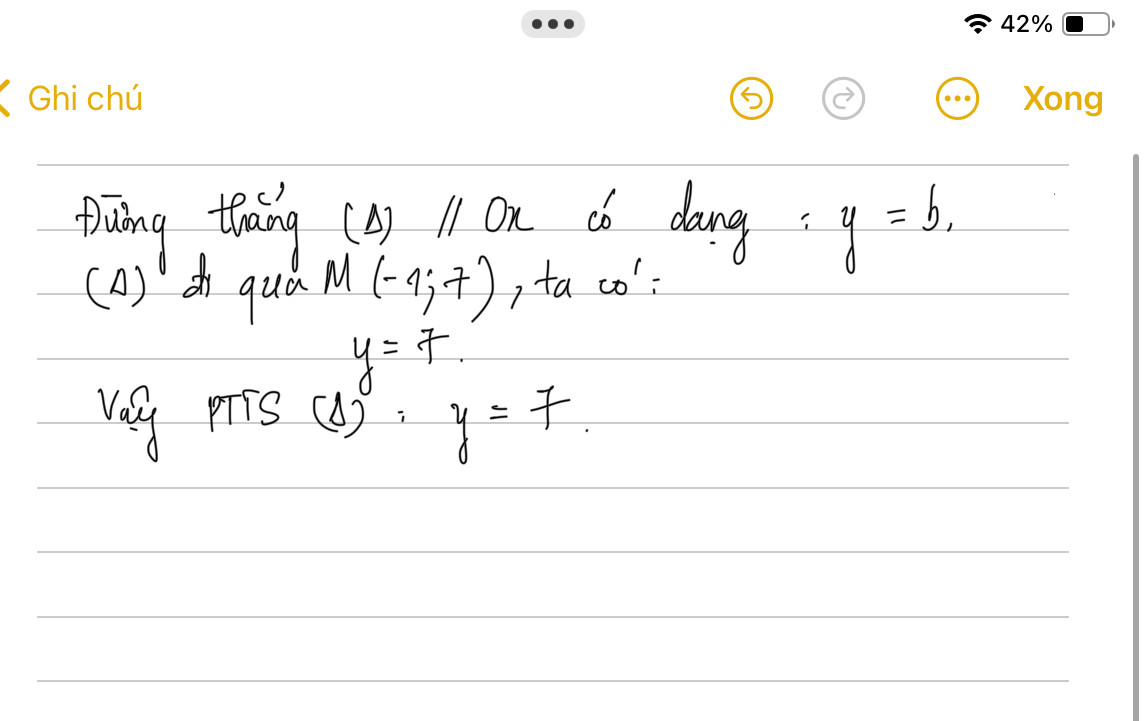 42%
Ghi chú
Xong
Đường thẳng (Δ) // Ox có dạng : y = b,
(Δ) đi qua M (-1; 7), ta có :
y = 7.
Vậy PTTS (Δ) : y = 7.